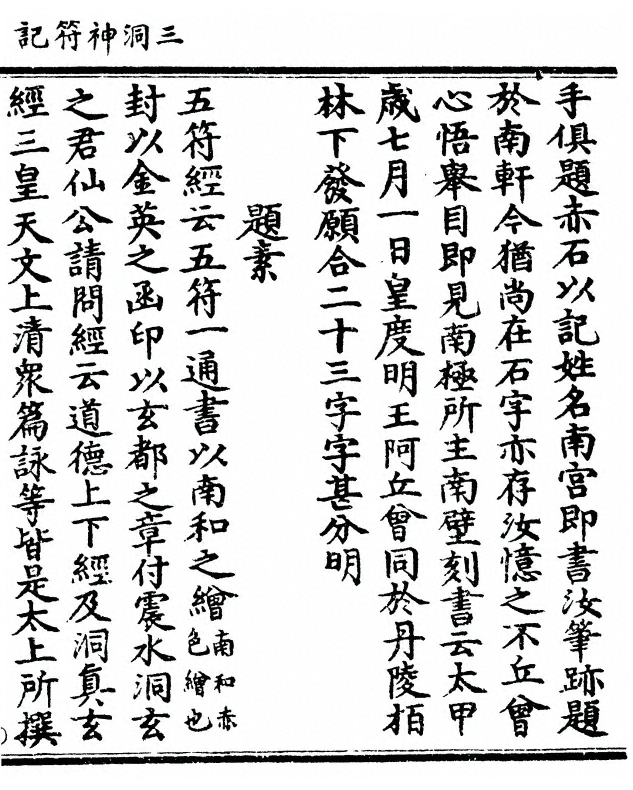 三洞神符記
手俱題赤石以記姓名南宮即書汝筆跡題
於南軒今猶尚在石字亦存汝憶之不丘曾
心悟舉目即見南極所主南壁刻書云太甲
歲七月一日皇度明王阿丘曾同於丹陵栢
林下發願合二十三字字甚分明
題素
五符經云五符一通書以南和之繒南和赤色繒也
封以金英之函印以玄都之章付震水洞玄
之君仙公請問經云道德上下經及洞真玄
經三皇天文上清衆篇詠等皆是太上所撰